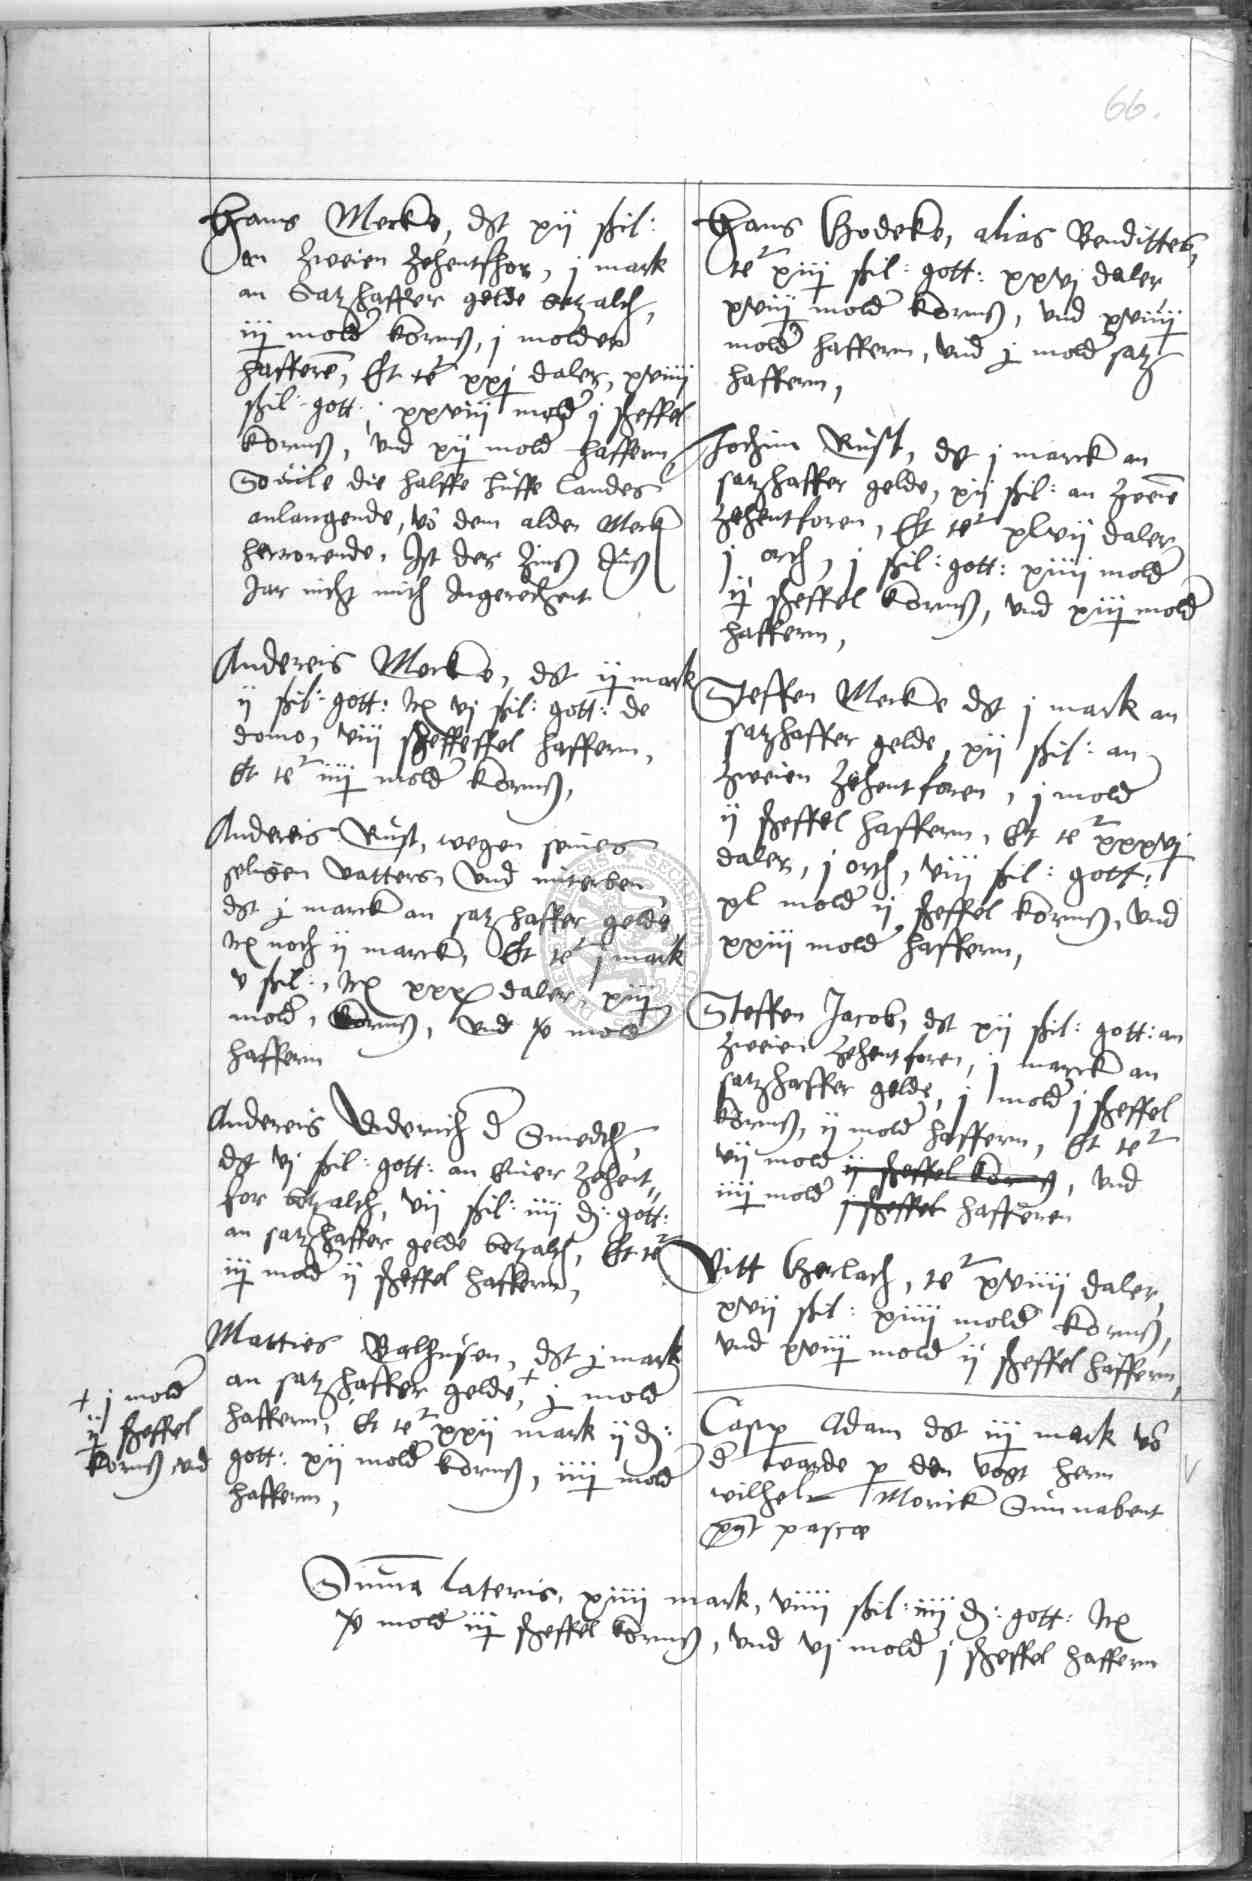 66.
Hans Mecke, dt xij ßil:
an zweien zehentfhor, j mark
an Satzhaffer gelde betzalth,
iij mold korns, j molder
hafferen, Et te xxj daler, xviiij
ßil: gott: xxviij mold j scheffel
korns, vnd xij mold haffern,
Souile die halffe huffe landes
anlangende, vo dem alden Meck
herrorende, Ist der Zins dus
Jar nicht mith Ingerechent
Andereis Mecke, dt ij mark
ij ßil: gott: Itz vj ßil: gott: de
domo, viij scheffeffel haffern,
Et te iiij mold korns,
Andereis Rust, wegen seines
seligen vatters, vnd miterben,
dt j marck an satzhaffer gelde,
Itz noch ij marck, Et te j mark
v ßil:, Itz xxx daler, xiij
mold, korns, vnd xv mold
haffern
Andereis Doderich d Smedth,
dt vj ßil: gott: an einer zehent,,
for betzalth, vij ßil: iiij d: gott:
an satzhaffer gelde betzalth, Et te
iij mold ij scheffel haffern,
Matties Balhusen, dt j mark
an satzhaffer gelde, + j mold
haffern, Et te xxij mark ij d:
gott: xij mold korns, iiij mold
haffern,
+ j mold
ij scheffel
korns vnd
Hans Godeke, alias Bendittes,
te xiij ßil: gott: xxvj daler
xviij mold korns, vnd xviiij
mold haffern, vnd j mold satz
haffern,
Jochim Rust, dt j marck an
satzhaffer gelde, xij ßil: an zweie
zehentforen, Et te xlvij daler
j orth, j ßil: gott: xiiij mold
ij scheffel korns, vnd xiij mold
haffern,
Steffen Mecke dt j mark an
satzhaffer gelde, xij ßil: an
zweien zehentforen, j mold
ij scheffel haffern, Et te xxxvj
daler, j orth, viij ßil: gott:
xl mold ij scheffel korns, vnd
xxiij mold haffern,
Steffen Jacob, dt xij ßil: gott: an
zweien zehentforen, j marck an
satzhaffer gelde, j mold j scheffel
korns, ij mold haffern, Et te
vij mold ij scheffel korns, vnd
iiij mold j scheffel hafferen
Vitt Gerlach, te xviiij daler,
xvij ßil: xiiij mold korns,
vnd xviij mold ij scheffel haffern,
Casp Adam dt iij mark vo
d warde p den vogt hern
wilhelm Morick Sunnabent
post pasce
Suma lateris, xiiij mark, viiij ßil: iiij d: gott: Itz
xv mold iij scheffel korns, vnd vj mold j scheffel haffern